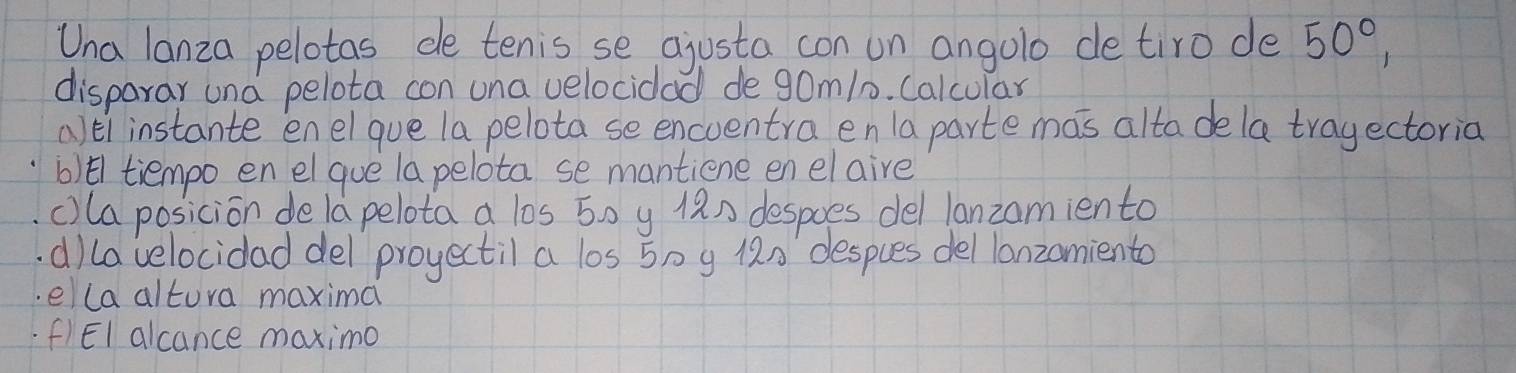 Una lanza pelotas de tenis se ajusta con un angulo de tiro de 50°,
disparar una pelota con una velocidad de 90m/s. Calcular
a) El instante en el que la pelota se encuentra en la parte más alta de la trayectoria
b) El tiempo en el que la pelota se mantiene en el aire
c) La posición de la pelota a los 5s y 12s despues del lanzamiento
d) La velocidad del proyectil a los 5s y 12s despues del lanzamiento
e) La altura maxima
f) El alcance maximo